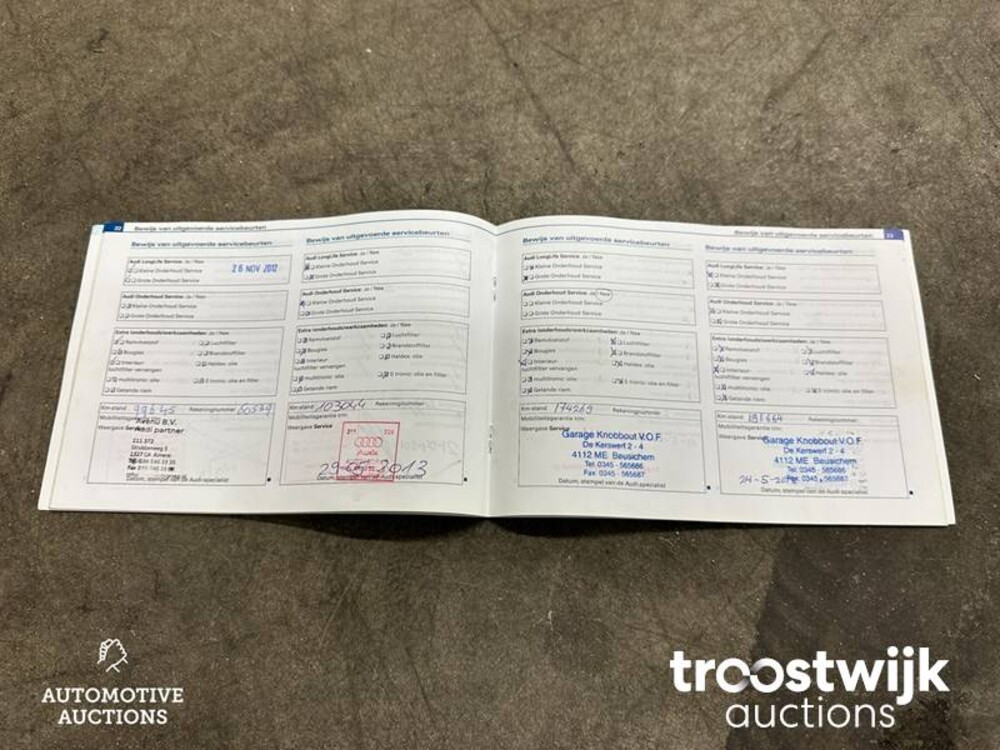 22 Bewijs van uitgevoerde servicebeurten
Bewijs van uitgevoerde servicebeurten
Audi LongLife Service: Ja / Nee
Kleine Onderhoud Service
Grote Onderhoud Service
26 NOV 2012
Audi Onderhoud Service: Ja / Nee
Kleine Onderhoud Service
Grote Onderhoud Service
Extra (onderhouds)werkzaamheden: Ja / Nee
Remvloeistof
Luchtfilter
Bougies
Brandstoffilter
Interieur
Haldex: olie
luchtfilter vervangen
multitronic: olie
S tronic: olie en filter
Getande riem
Km-stand 99645 Rekeningnummer 60539
Mobiliteitsgarantie t/m:
Weergave Service
Avenu B.V.
Audi partner
211 372
Datum, stempel van de Audi-specialist
Bewijs van uitgevoerde servicebeurten
Audi LongLife Service: Ja / Nee
Kleine Onderhoud Service
Grote Onderhoud Service
Audi Onderhoud Service: Ja / Nee
Kleine Onderhoud Service
Grote Onderhoud Service
Extra (onderhouds)werkzaamheden: Ja / Nee
Remvloeistof
Luchtfilter
Bougies
Brandstoffilter
Interieur
Haldex: olie
luchtfilter vervangen
multitronic: olie
S tronic: olie en filter
Getande riem
Km-stand 103044 Rekeningnummer:
Mobiliteitsgarantie t/m:
Weergave Service
Audi
2013
Datum, stempel van de Audi-specialist
Bewijs van uitgevoerde servicebeurten 23
Bewijs van uitgevoerde servicebeurten
Audi LongLife Service: Ja / Nee
Kleine Onderhoud Service
Grote Onderhoud Service
Audi Onderhoud Service: Ja / Nee
Kleine Onderhoud Service
Grote Onderhoud Service
Extra (onderhouds)werkzaamheden: Ja / Nee
Remvloeistof
Luchtfilter
Bougies
Brandstoffilter
Interieur
Haldex: olie
luchtfilter vervangen
multitronic: olie
S tronic: olie en filter
Getande riem
Km-stand 174269 Rekeningnummer:
Mobiliteitsgarantie t/m:
Weergave Service
Garage Knobbout V.O.F.
De Kerswerf 2 - 4
4112 ME Beusichem
Tel. 0345 - 565686
Fax. 0345 - 565687
Datum, stempel van de Audi-specialist
Bewijs van uitgevoerde servicebeurten
Audi LongLife Service: Ja / Nee
Kleine Onderhoud Service
Grote Onderhoud Service
Audi Onderhoud Service: Ja / Nee
Kleine Onderhoud Service
Grote Onderhoud Service
Extra (onderhouds)werkzaamheden: Ja / Nee
Remvloeistof
Luchtfilter
Bougies
Brandstoffilter
Interieur
Haldex: olie
luchtfilter vervangen
multitronic: olie
S tronic: olie en filter
Getande riem
Km-stand 191664 Rekeningnummer:
Mobiliteitsgarantie t/m:
Weergave Service
Garage Knobbout V.O.F.
De Kerswerf 2 - 4
4112 ME Beusichem
Tel. 0345 - 565686
Fax. 0345 - 565687
Datum, stempel van de Audi-specialist
AUTOMOTIVE
AUCTIONS
troostwijk
auctions